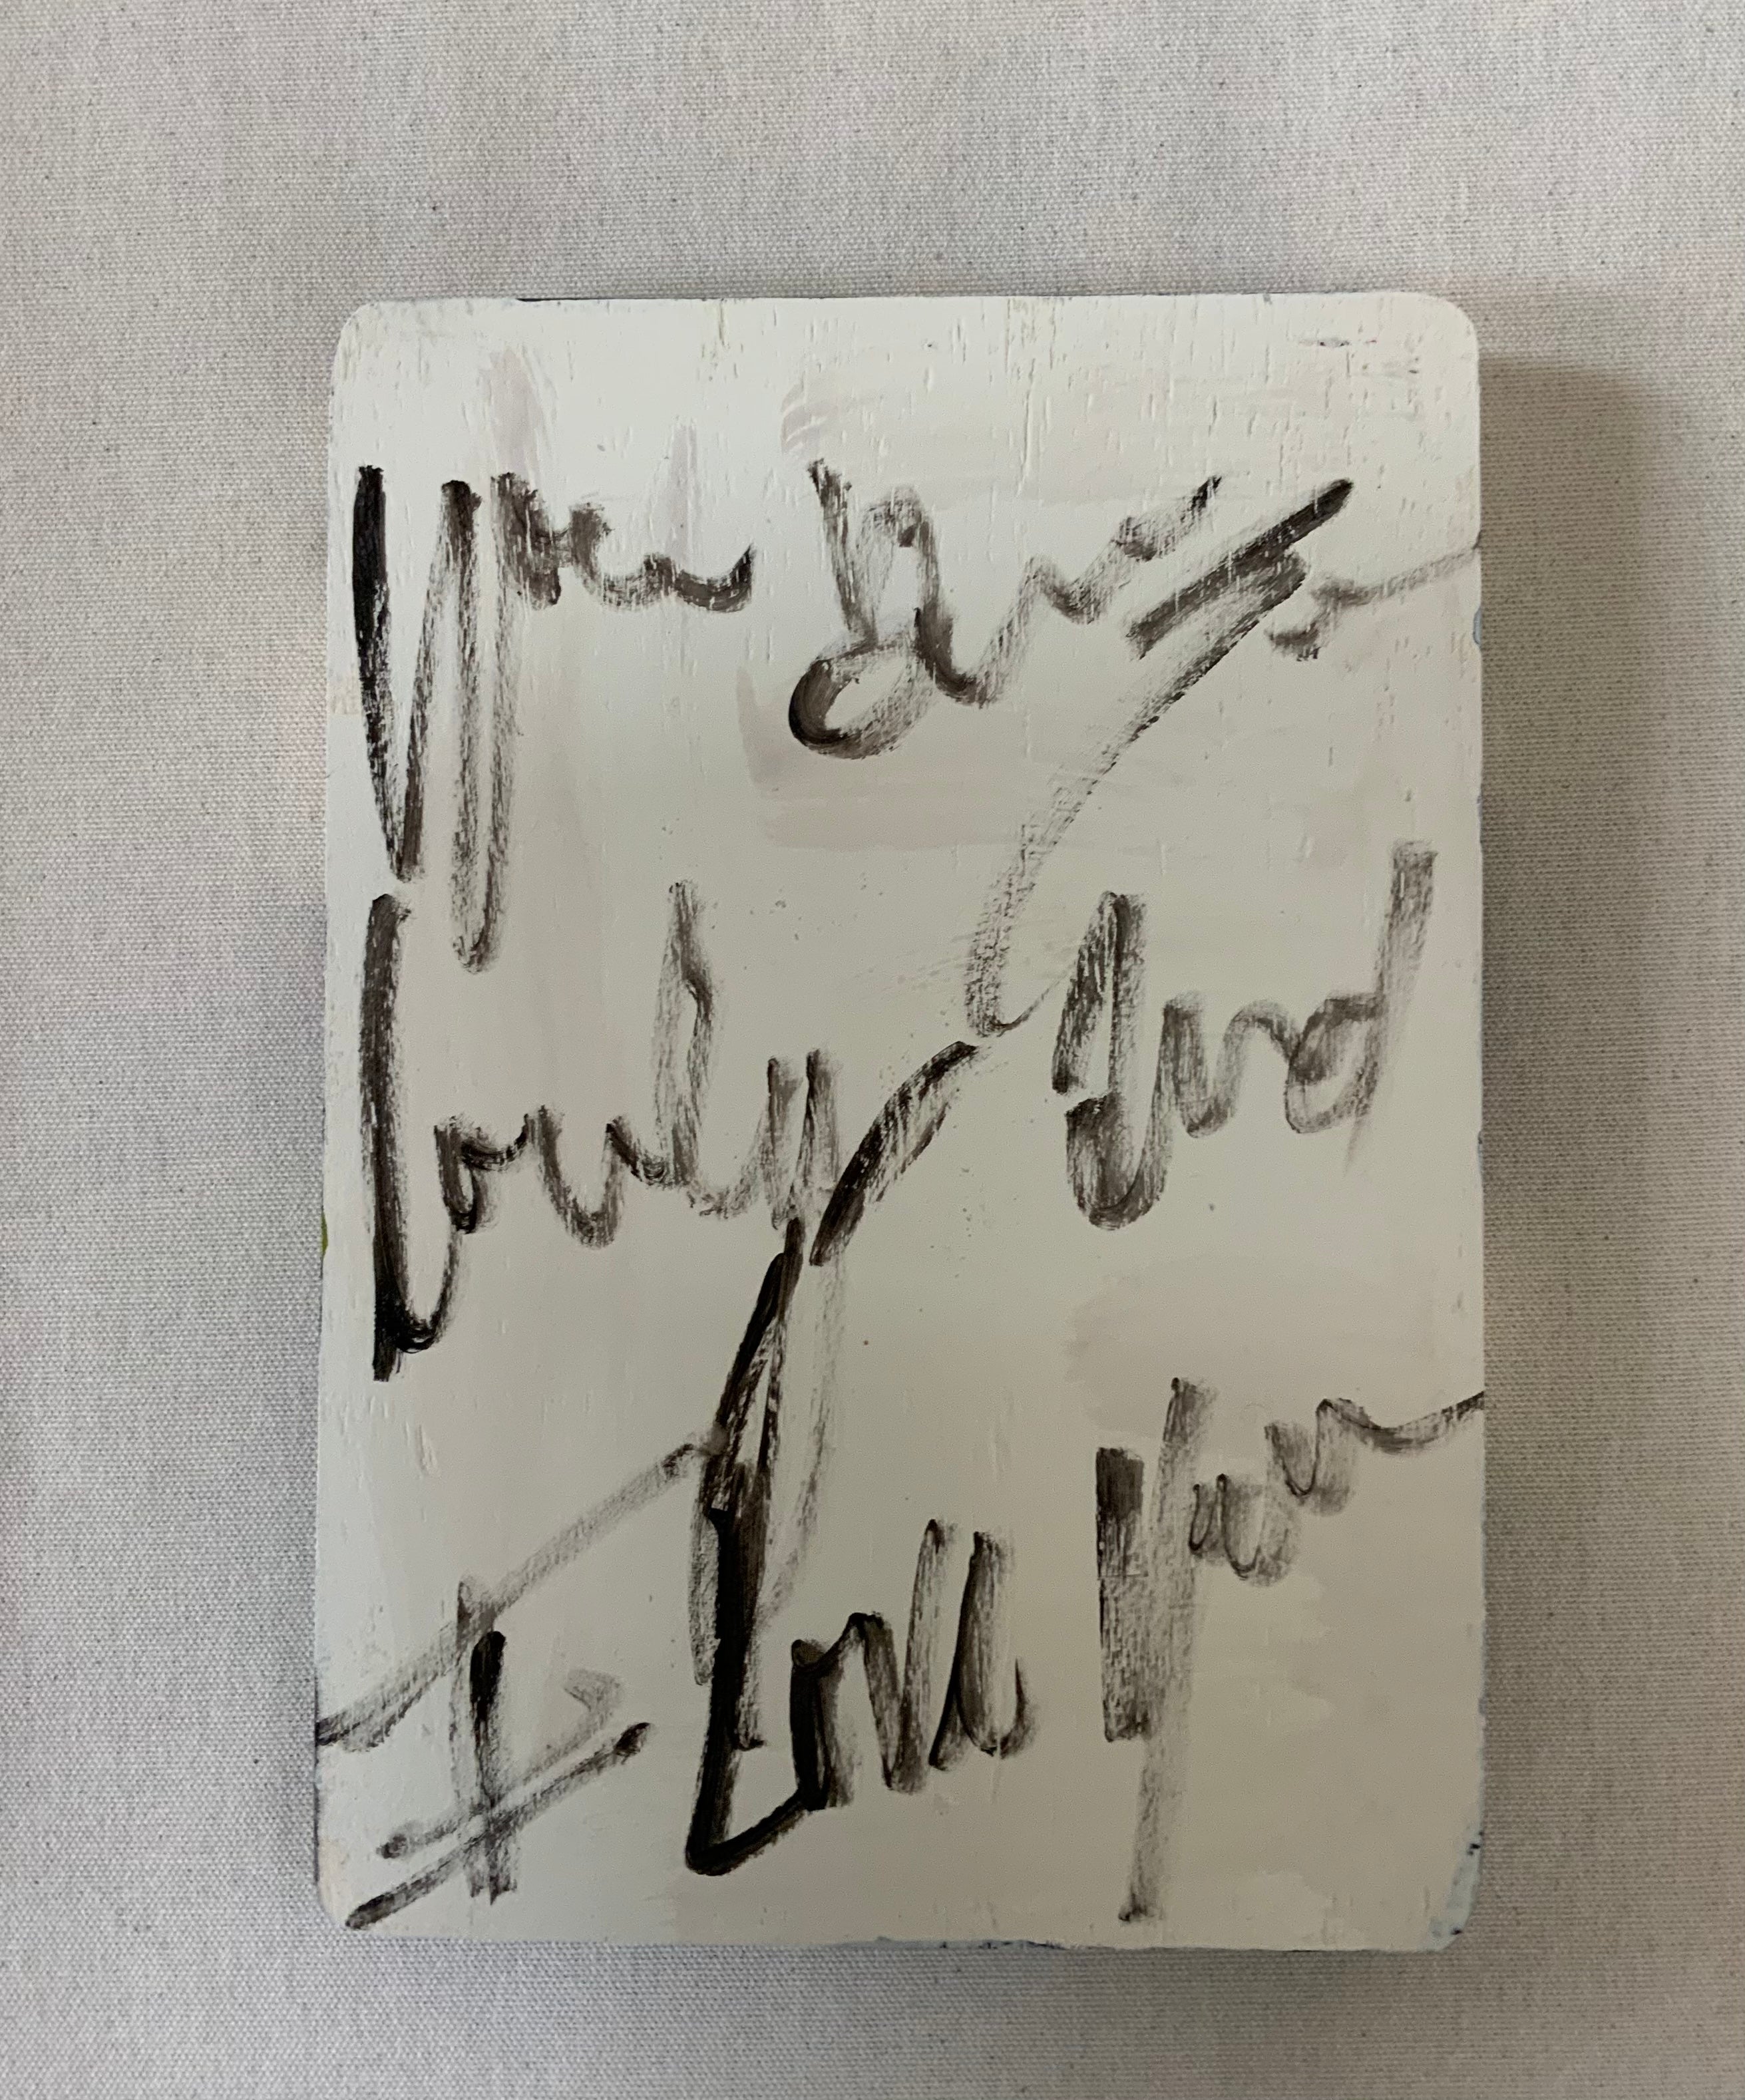 You are
lovely And
I Love You